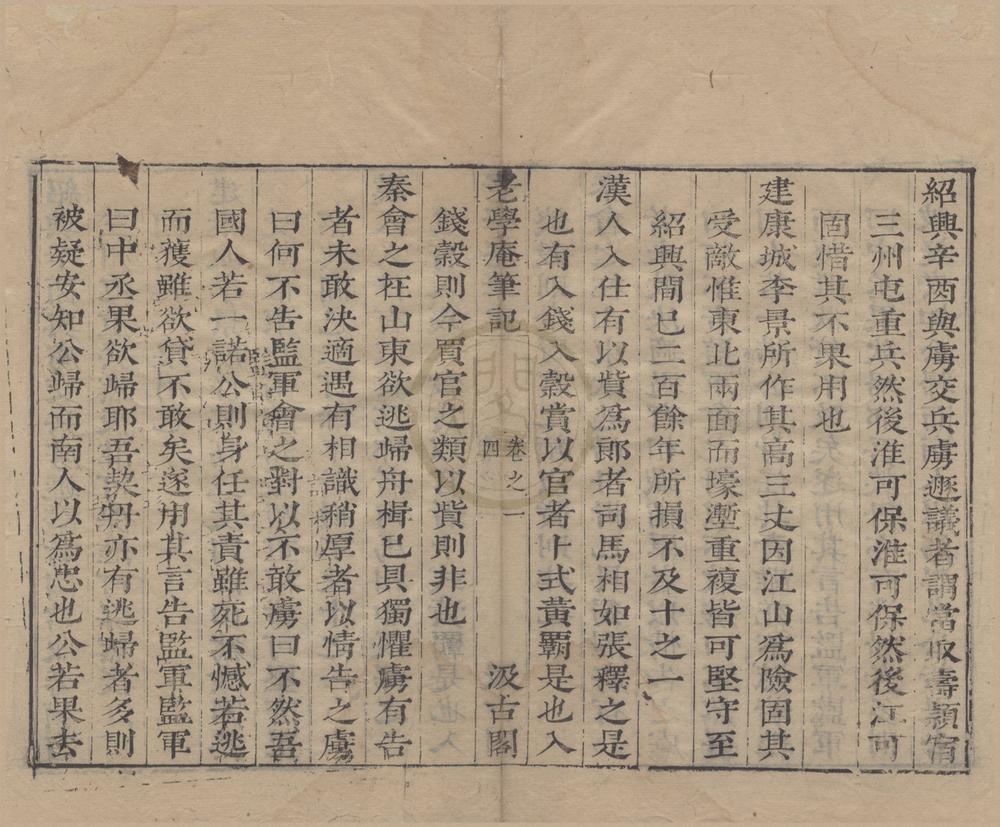 紹興辛酉與虜交兵虜遯議者謂當取壽潁宿
三州屯重兵然後淮可保淮可保然後江可
固惜其不果用也
建康城李景所作其高三丈因江山爲險固其
受敵惟東北兩面而壕塹重複皆可堅守至
紹興間已二百餘年所損不及十之一
漢人入仕有以貲爲郎者司馬相如張釋之是
也有入錢入穀賞以官者卜式黃霸是也入
老學庵筆記 卷之一 四 汲古閣
錢穀則今買官之類以貲則非也
秦會之在山東欲逃歸舟楫已具獨懼虜有告
者未敢決適遇有相識稍厚者以情告之虜
曰何不告監軍會之對以不敢虜曰不然吾
國人若一諾公則身任其責雖死不憾若逃
而獲雖欲貸不敢矣遂用其言告監軍監軍
曰中丞果欲歸耶吾契丹亦有逃歸者多則
被疑安知公歸而南人以爲忠也公若果去